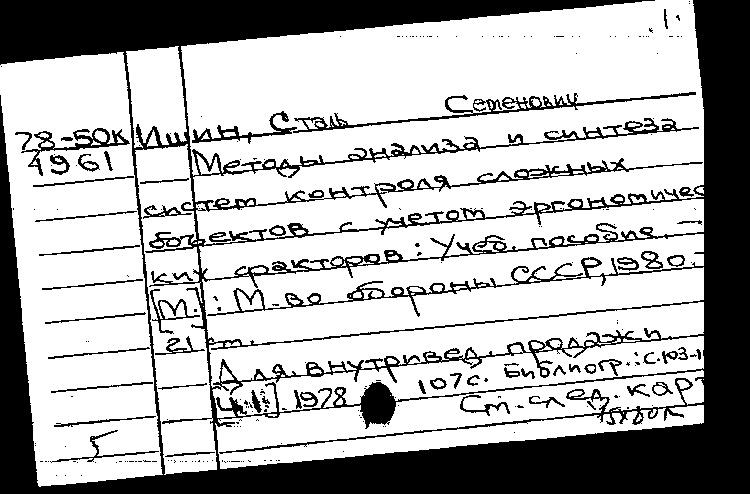 78-50к Ишин, Сталь Семенович
4961 Методы анализа и синтеза
систем контроля сложных
объектов с учетом эргономичес
ких факторов: Учеб. пособие. —
[М.]: М-во обороны СССР, 1980.-
21 см.
Для внутривед. продажи
[Ч.1] 1978 107с. Библиогр.: с.103-1
См. след. карт
5